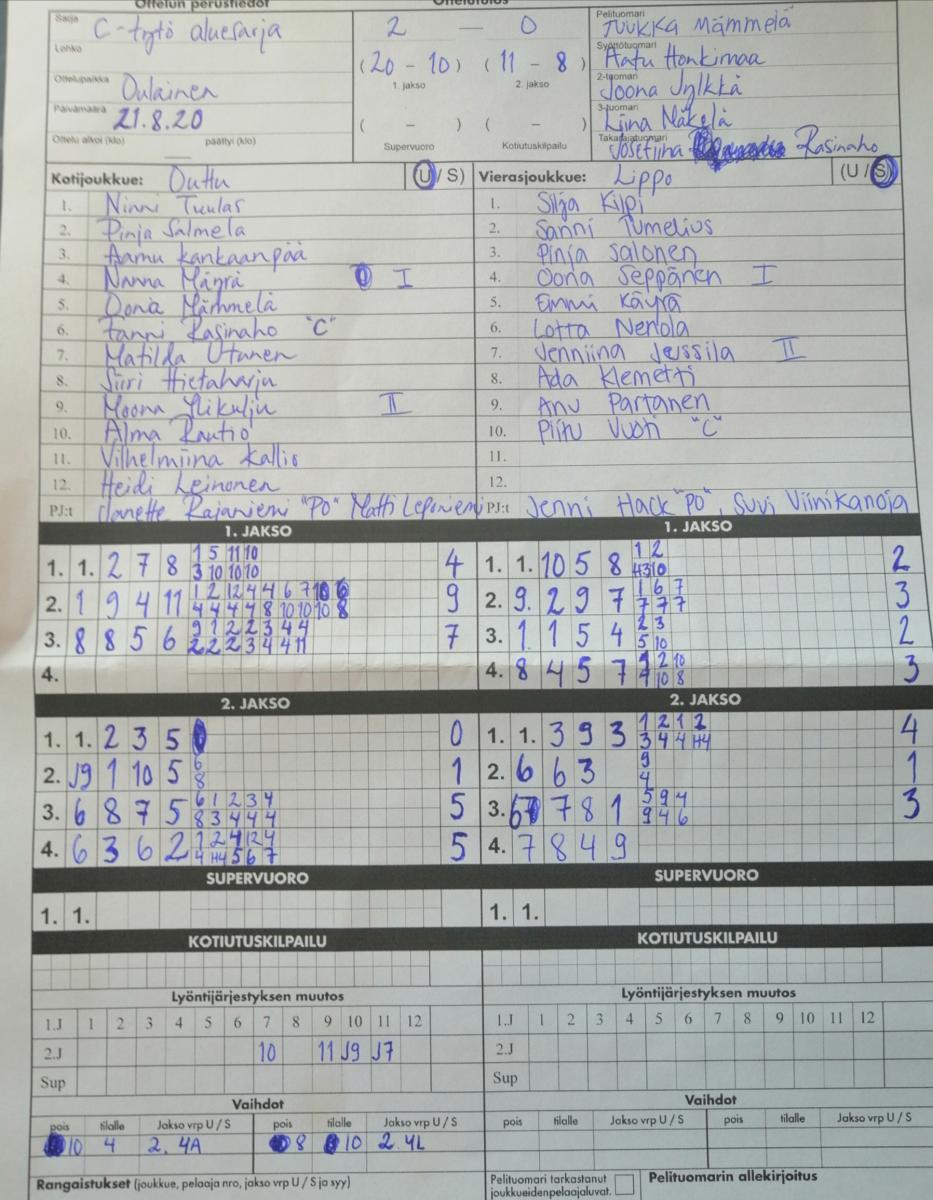 Ottelun perustiedot
Ottelutulos
Sarja C-tytö aluesarja
Lohko
Ottelupaikka Oulainen
Päivämäärä 21.8.20
Ottelu alkoi (klo) päättyi (klo)
2 — 0
(20 - 10) (11 - 8)
1. jakso 2. jakso
( - ) ( - )
Supervuoro Kotiutuskilpailu
Pelituomari Tuukka Mämmelä
Syöttötuomari Aatu Honkimaa
2-tuomari Joona Jylkkä
3-tuomari Liina Mäkelä
Takarajatuomari Josefiina Rasinaho
Kotijoukkue: Ouhu (U / S)
1. Ninni Tuulas
2. Pinja Salmela
3. Aamu Kankaanpää
4. Nanna Mäyrä I
5. Oona Mämmelä
6. Fanni Rasinaho "C"
7. Matilda Utunen
8. Siiri Hietaharju
9. Moona Ylikulju II
10. Alma Rautio
11. Vilhelmiina Kallio
12. Heidi Leinonen
PJ:t Janette Rajaniemi "PO" Matti Lepiniemi
Vierasjoukkue: Lippo (U / S)
1. Silja Kilpi
2. Sanni Tumelius
3. Pinja Salonen
4. Oona Seppänen I
5. Emmi Käyrä
6. Lotta Nenola
7. Jenniina Jussila II
8. Ada Klemetti
9. Anu Partanen
10. Piitu Vuoti "C"
11.
12.
PJ:t Jenni Hack "PO", Suvi Viinikanoja
1. JAKSO
1. 1. 2 7 8 1 5 11 10 4
3 10 10 10
2. 1 9 4 11 1 2 12 4 4 6 7 10 6 9
4 4 4 4 8 10 10 10 8
3. 8 8 5 6 9 1 2 2 3 4 4 7
2 2 2 3 4 4 11
4.
1. JAKSO
1. 1. 10 5 8 1 2 2
3 10
2. 9. 2 9 7 1 6 7 3
7 7 7
3. 1. 1 5 4 2 3 2
5 10
4. 8 4 5 7 1 2 10 3
4 10 8
2. JAKSO
1. 1. 2 3 5 0
2. J9 1 10 5 6 1
8
3. 6 8 7 5 6 1 2 3 4 5
8 3 4 4 4
4. 6 3 6 2 1 2 4 12 4 5
4 H4 5 6 7
2. JAKSO
1. 1. 3 9 3 1 2 1 2 4
3 4 4 H4
2. 6 6 3 9 1
4
3. 6 7 8 1 5 9 4 3
9 4 6
4. 7 8 4 9
SUPERVUORO
1. 1.
SUPERVUORO
1. 1.
KOTIUTUSKILPAILU
KOTIUTUSKILPAILU
Lyöntijärjestyksen muutos
1.J 1 2 3 4 5 6 7 8 9 10 11 12
2.J 10 11 J9 J7
Sup
Lyöntijärjestyksen muutos
1.J 1 2 3 4 5 6 7 8 9 10 11 12
2.J
Sup
Vaihdot
pois tilalle Jakso vrp U / S pois tilalle Jakso vrp U / S
10 4 2. 4A 8 10 2. 4L
Vaihdot
pois tilalle Jakso vrp U / S pois tilalle Jakso vrp U / S
Rangaistukset (joukkue, pelaaja nro, jakso vrp U / S ja syy)
Pelituomari tarkastanut
joukkueidenpelaajaluvat.
Pelituomarin allekirjoitus